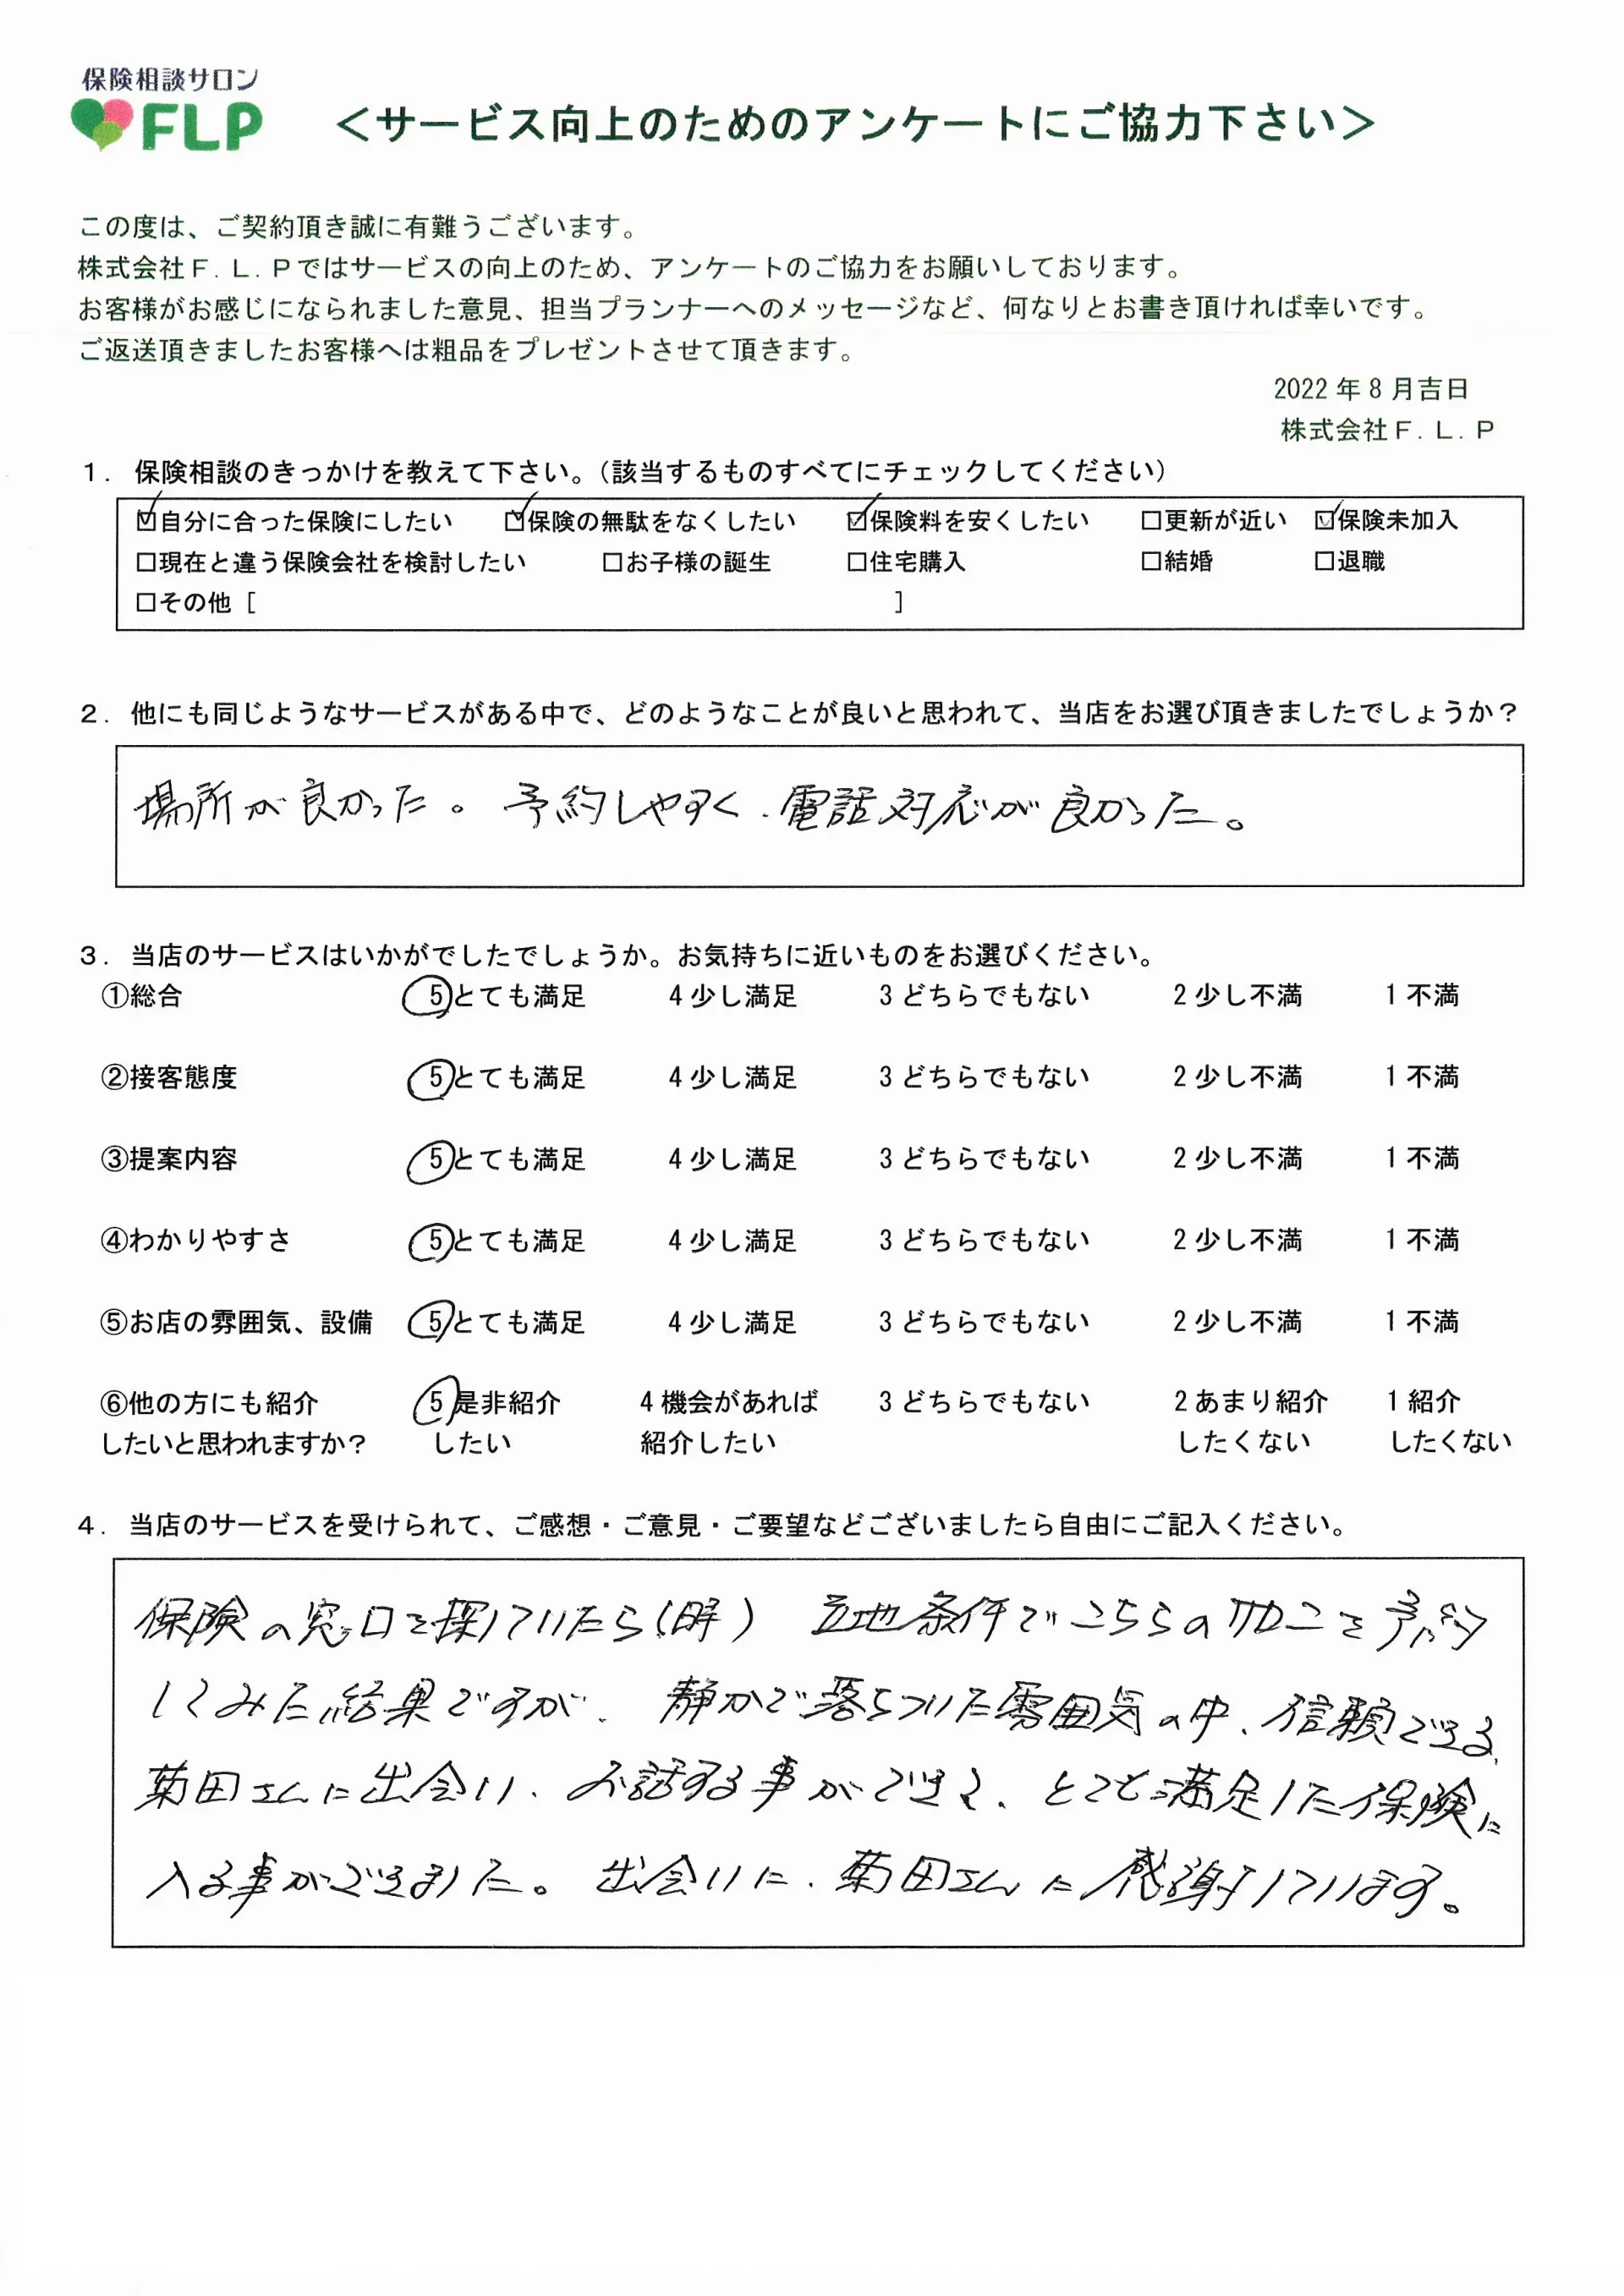 保険相談サロン
FLP
＜サービス向上のためのアンケートにご協力下さい＞
この度は、ご契約頂き誠に有難うございます。
株式会社Ｆ．Ｌ．Ｐではサービスの向上のため、アンケートのご協力をお願いしております。
お客様がお感じになられました意見、担当プランナーへのメッセージなど、何なりとお書き頂ければ幸いです。
ご返送頂きましたお客様へは粗品をプレゼントさせて頂きます。
2022 年 8 月吉日
株式会社Ｆ．Ｌ．Ｐ
１．保険相談のきっかけを教えて下さい。（該当するものすべてにチェックしてください）
☑自分に合った保険にしたい ☑保険の無駄をなくしたい ☑保険料を安くしたい □更新が近い ☑保険未加入
□現在と違う保険会社を検討したい □お子様の誕生 □住宅購入 □結婚 □退職
□その他［ ］
２．他にも同じようなサービスがある中で、どのようなことが良いと思われて、当店をお選び頂きましたでしょうか？
場所が良かった。予約しやすく、電話対応が良かった。
３．当店のサービスはいかがでしたでしょうか。お気持ちに近いものをお選びください。
①総合 5 とても満足 4 少し満足 3 どちらでもない 2 少し不満 1 不満
②接客態度 5 とても満足 4 少し満足 3 どちらでもない 2 少し不満 1 不満
③提案内容 5 とても満足 4 少し満足 3 どちらでもない 2 少し不満 1 不満
④わかりやすさ 5 とても満足 4 少し満足 3 どちらでもない 2 少し不満 1 不満
⑤お店の雰囲気、設備 5 とても満足 4 少し満足 3 どちらでもない 2 少し不満 1 不満
⑥他の方にも紹介 5 是非紹介 4 機会があれば 3 どちらでもない 2 あまり紹介 1 紹介
したいと思われますか？ したい 紹介したい したくない したくない
４．当店のサービスを受けられて、ご感想・ご意見・ご要望などございましたら自由にご記入ください。
保険の窓口で探していたら（ ） 立地条件でこちらのサロンを予約
してみた結果ですが、静かで落ちついた雰囲気の中、信頼できる
菊田さんに出会い、お話する事ができて、とても満足した保険に
入る事ができました。出会いに、菊田さんに感謝しています。